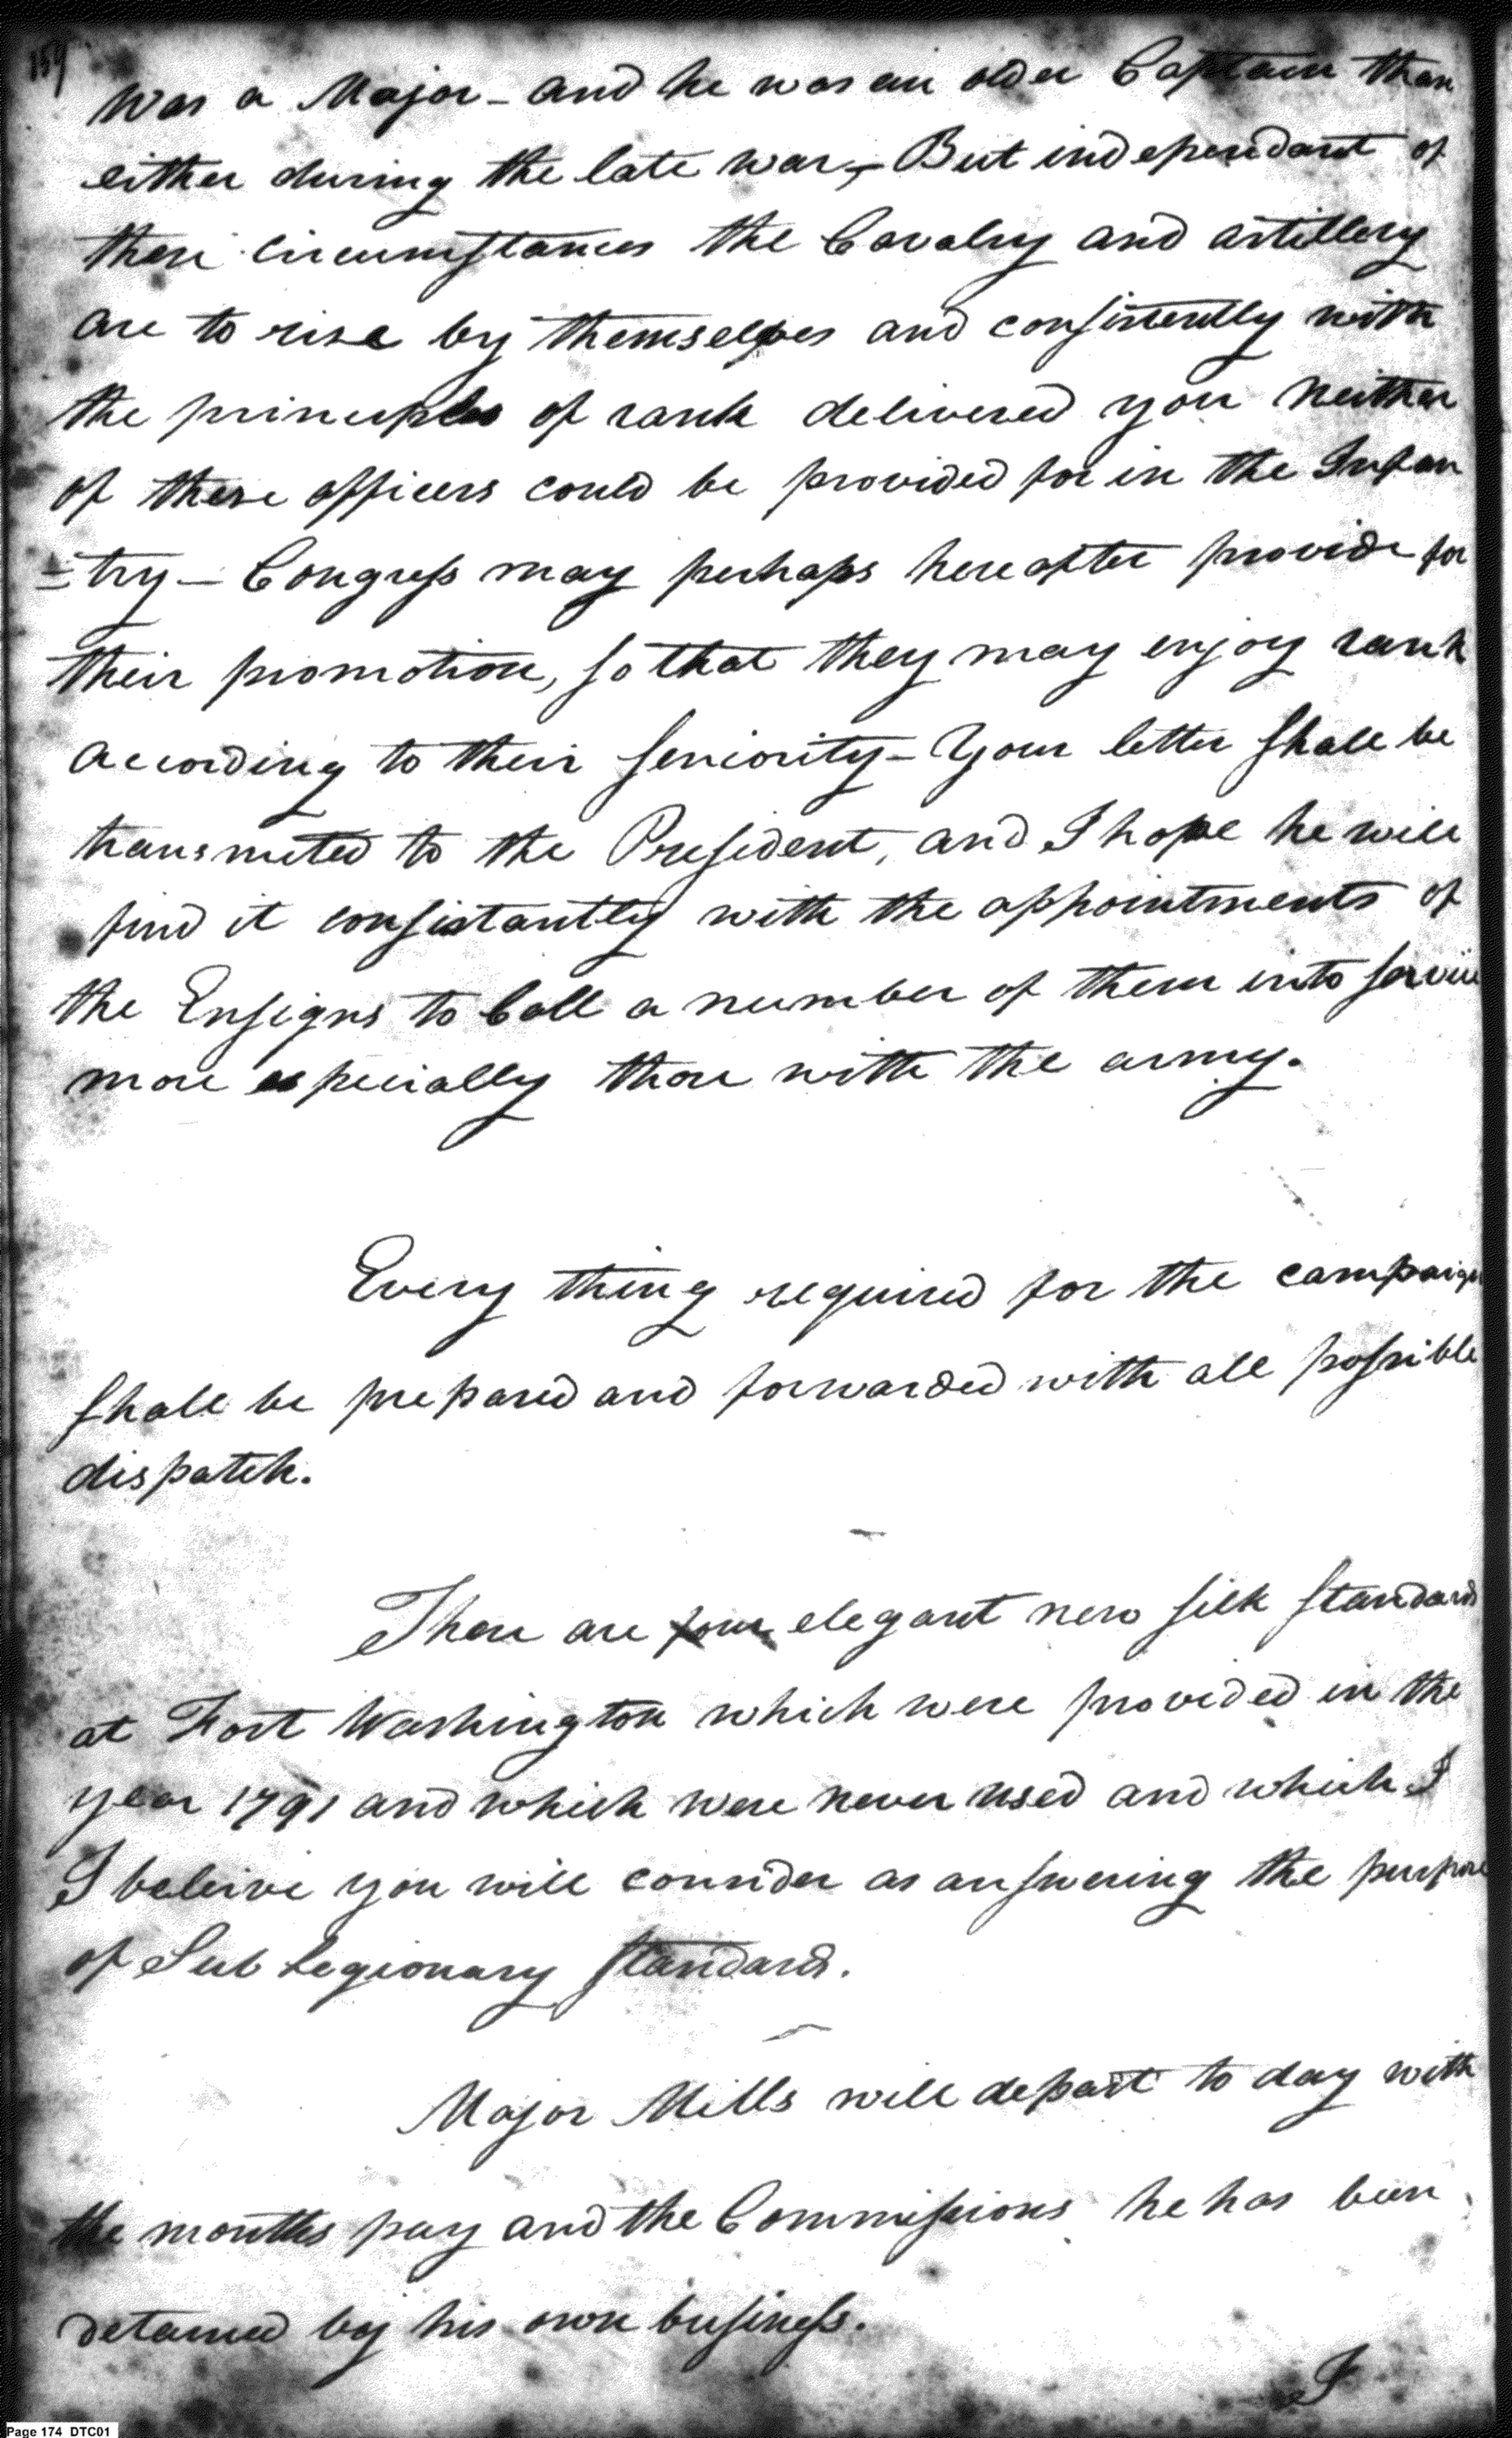 159
was a Major - and he was an older Captain than
either during the late war, - But independant of
these circumstances the Cavalry and artillery
are to rise by themselves and consistently with
the principles of rank delivered you neither
of these officers could be provided for in the Infan
=try - Congress may perhaps hereafter provide for
their promotion, so that they may enjoy rank
according to their seniority - Your letter shall be
transmited to the President, and I hope he will
find it consistantly with the appointments of
the Ensigns to Call a number of them into service
more especially those with the army.
Every thing required for the campaign
shall be prepared and forwarded with all possible
dispatch.
There are four elegant new silk Standards
at Fort Washington which were provided in the
year 1791 and which were never used and which I
I beleive you will consider as answering the purpose
of Sub Legionary Standards.
Major Mills will depart to day with
the months pay and the Commissions he has been
detained by his own business.
I
Page 174 DTC01